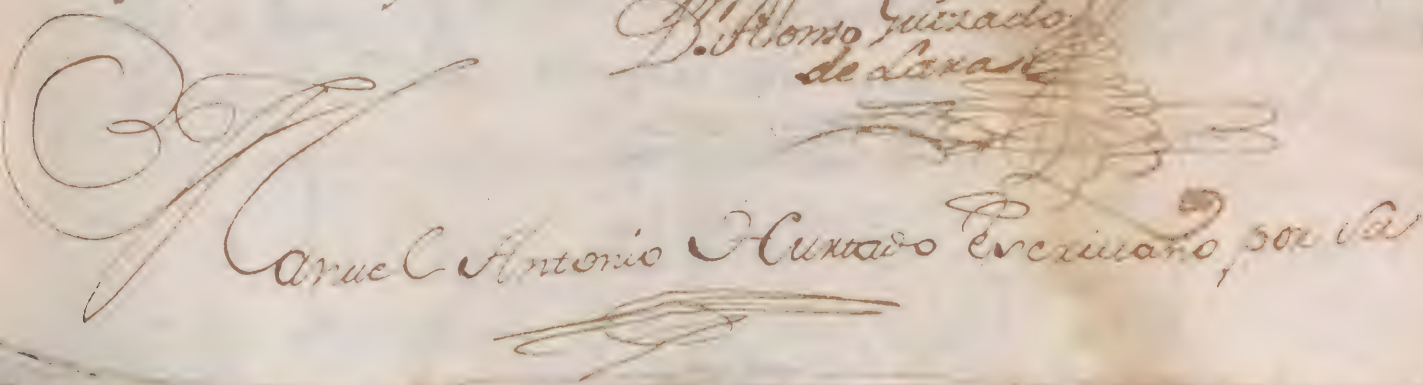 D. Alonso Guizado
de Lara
Manuel Antonio Hurtado Escriuano, por Su